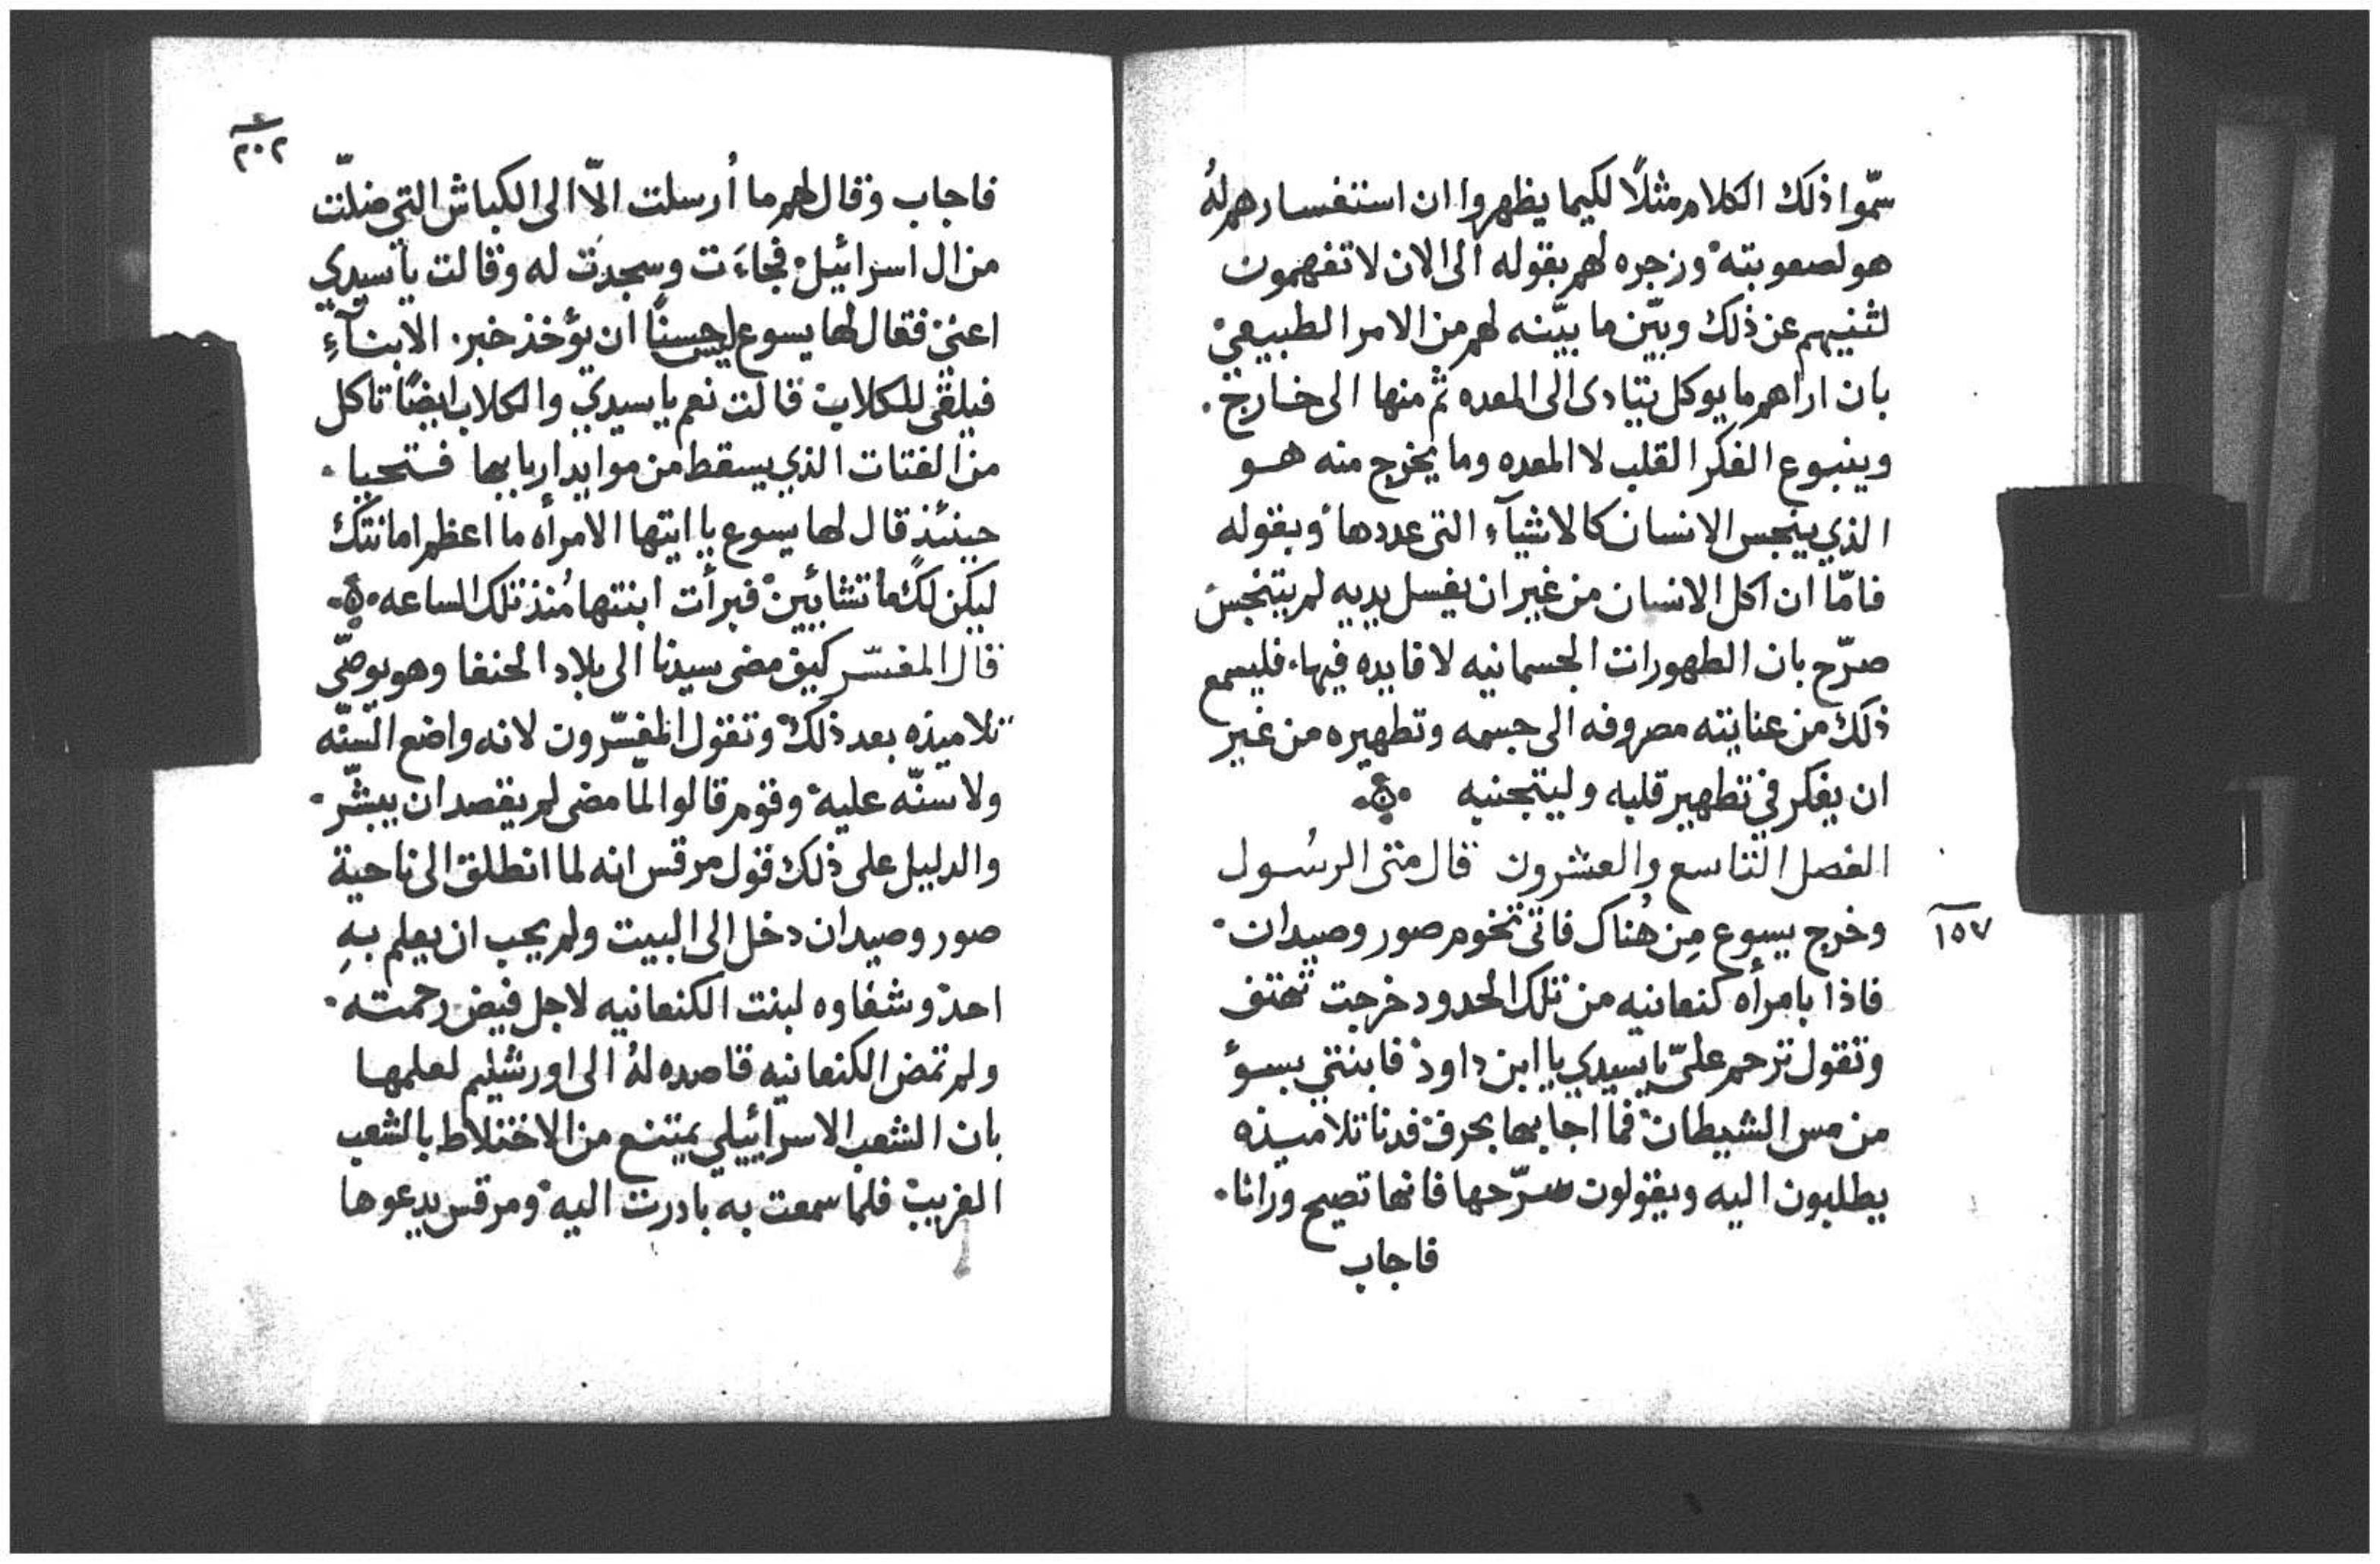 سمّوا ذلك الكلام مثلاً لكيما يظهروا ان استفسارهم لهُ
هو لصعوبته وزجره لهم بقوله الى الان لا تفهمون
لثنيهم عن ذلك وبيّن ما بيّنه لهم من الامر الطبيعي
بان اراهم ما يوكل يتادى الى المعده ثم منها الى خارج.
وينبوع الفكر القلب لا المعده وما يخرج منه هو
الذي ينجس الانسان كالاشيآء التي عددها وبقوله
فامّا ان اكل الانسان من غير ان يغسل يديه لم يتنجس
صرّح بان الطهورات الجسمانيه لا فايده فيها. فليسمع
ذلك من عنايته مصروفه الى جسمه وتطهيره من غير
ان يفكر في تطهير قلبه وليتجنبه
الفصل التاسع والعشرون قال متى الرسُول
وخرج يسوع مِن هُناك فاتى تخوم صور وصيدان.
١٥٧
فاذا بامرأه كنعانيه من تلك الحدود خرجت تهتف
وتقول ترحم عليّ يا سيدي يا ابن داود فابنتي بسؤ
من مس الشيطان فما اجابها بحرف فدنا تلاميذه
يطلبون اليه ويقولون سرّحها فانها تصيح ورانا.
فاجاب
٢٠٢
فاجاب وقال لهم ما اُرسلت الّا الى الكباش التي ضلّت
من ال اسرائيل فجاءَت وسجدَت له وقالت يا سيدي
اعنّي فقال لها يسوع ليس حسنًا ان يؤخذ خبز الابنآءِ
فيلقى للكلاب قالت نعم يا سيدي والكلاب ايضًا تاكل
من الفتات الذي يسقط من موايد اربابها فتحيا.
حينئذ قال لها يسوع يا ايتها الامرأه ما اعظم امانتك
ليكن لك ما تشايين فبرأت ابنتها مُنذ تلك الساعه
قال المفسّر كيف مضى سيدنا الى بلاد الحنفا وهو يوصّي
تلاميذه بعد ذلك وتقول المفسّرون لانه واضع السنّه
ولا سنّه عليه وقوم قالوا لمّا مضى لم يقصد ان يبشّر.
والدليل على ذلك قول مرقس انه لما انطلق الى ناحية
صور وصيدان دخل الى البيت ولم يحب ان يعلم بهِ
احد وشفاوه لبنت الكنعانيه لاجل فيض رحمته.
ولم تمض الكنعانيه قاصده لهُ الى اورشليم لعلمها
بان الشعب الاسرائيلي يمتنع من الاختلاط بالشعب
الغريب فلما سمعت به بادرت اليه ومرقس يدعوها